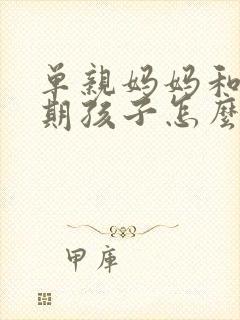 单亲妈妈和
期孩子怎麽
甲库